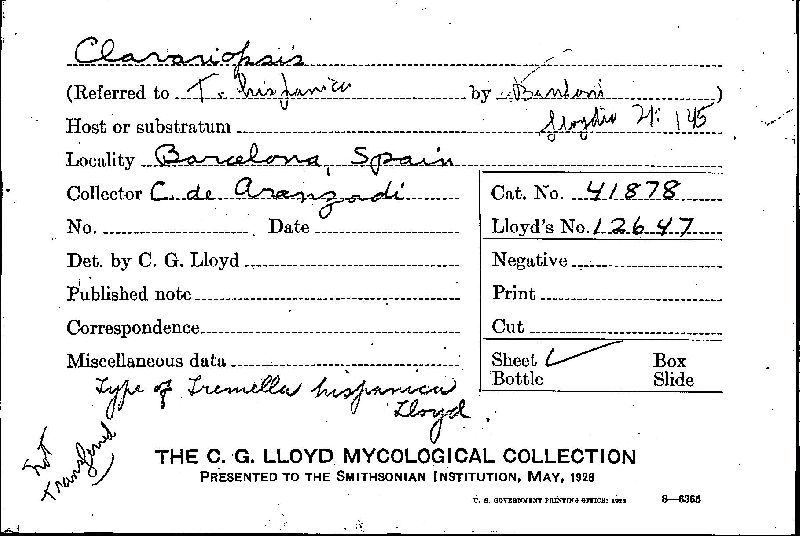 Clavariopsis
(Referred to T. hispanica by Bandoni)
Lloydia 21: 145
Host or substratum
Locality Barcelona, Spain
Collector C. de Aranzadi
Cat. No. 41878
No. Date
Lloyd's No. 12647
Det. by C. G. Lloyd
Negative
Published note
Print
Correspondence
Cut
Miscellaneous data
Sheet ✓ Box
Bottle Slide
Type of Tremella hispanica
Lloyd.
Not
Transferred
THE C. G. LLOYD MYCOLOGICAL COLLECTION
PRESENTED TO THE SMITHSONIAN INSTITUTION, MAY, 1928
U. S. GOVERNMENT PRINTING OFFICE: